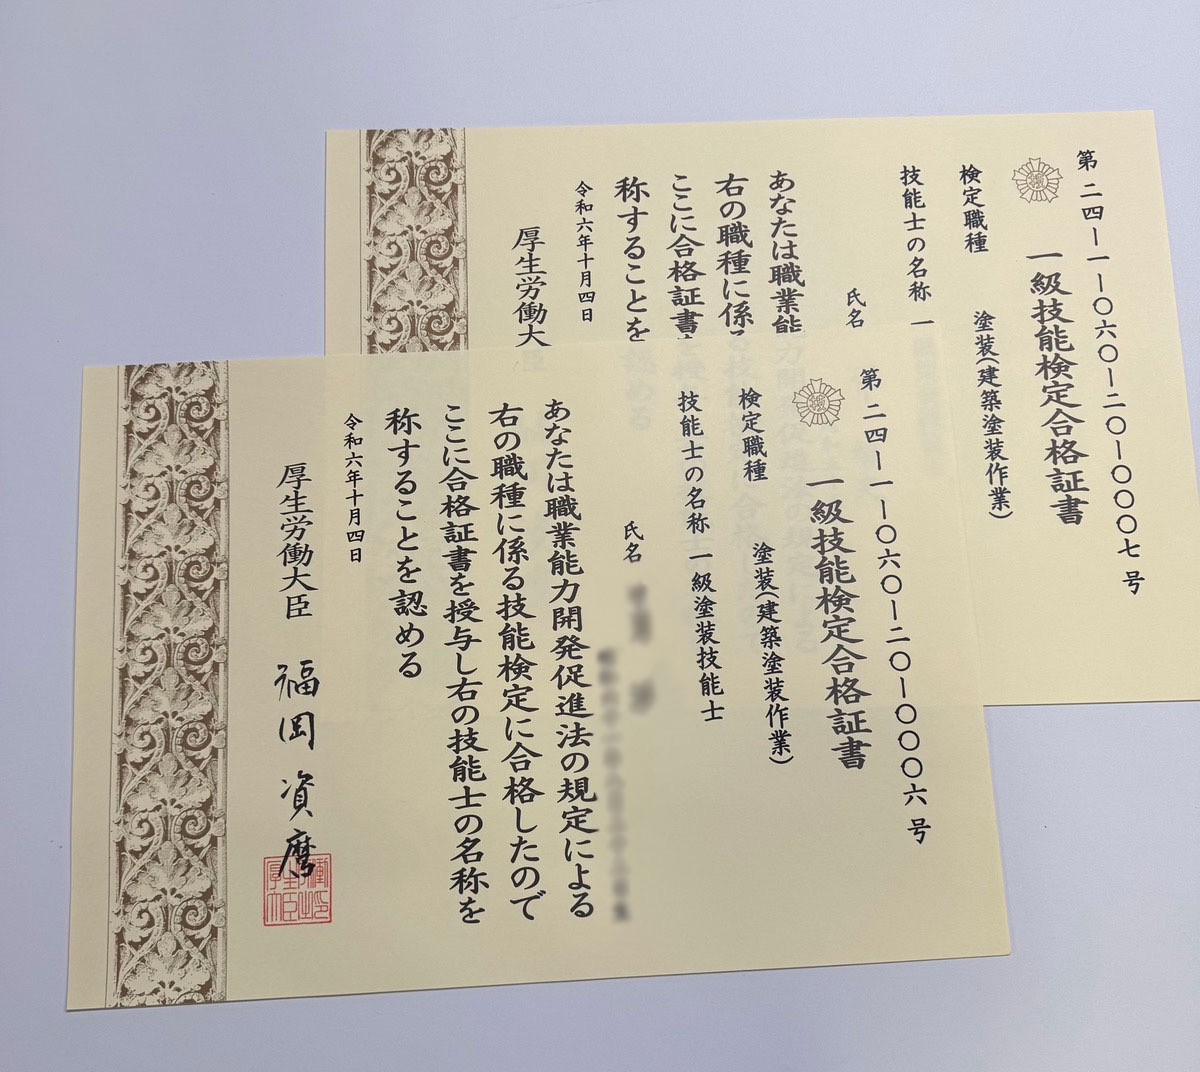 第二四―一―〇六〇―二〇―〇〇〇七号
一級技能検定合格証書
検定職種 塗装(建築塗装作業)
技能士の名称 一
氏名
あなたは職業能
右の職種に係る
ここに合格証書
称することを
令和六年十月四日
厚生労働大
第二四―一―〇六〇―二〇―〇〇〇六号
一級技能検定合格証書
検定職種 塗装(建築塗装作業)
技能士の名称 一級塗装技能士
氏名
あなたは職業能力開発促進法の規定による
右の職種に係る技能検定に合格したので
ここに合格証書を授与し右の技能士の名称を
称することを認める
令和六年十月四日
厚生労働大臣 福岡資麿